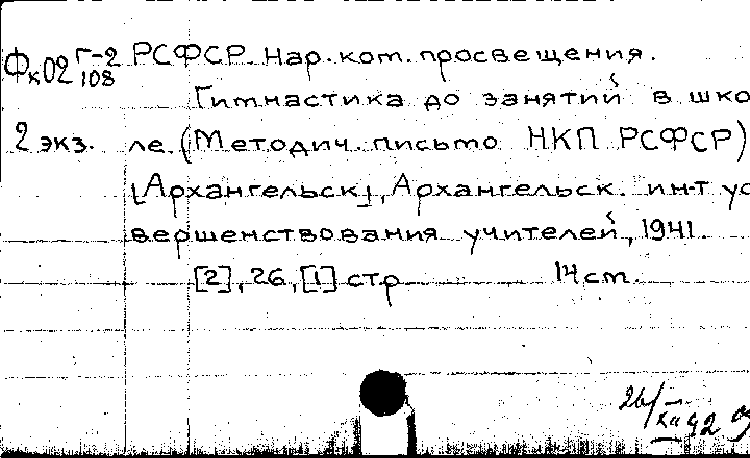 Фк02 Г-2/108 РСФСР. Нар. ком. просвещения.
Гимнастика до занятий в шко
2 экз. ле. (Методич. письмо НКП РСФСР)
[Архангельск], Архангельск. ин-т ус
вершенствования учителей, 1941.
[2], 26, [1] стр 14 см.
26/
42